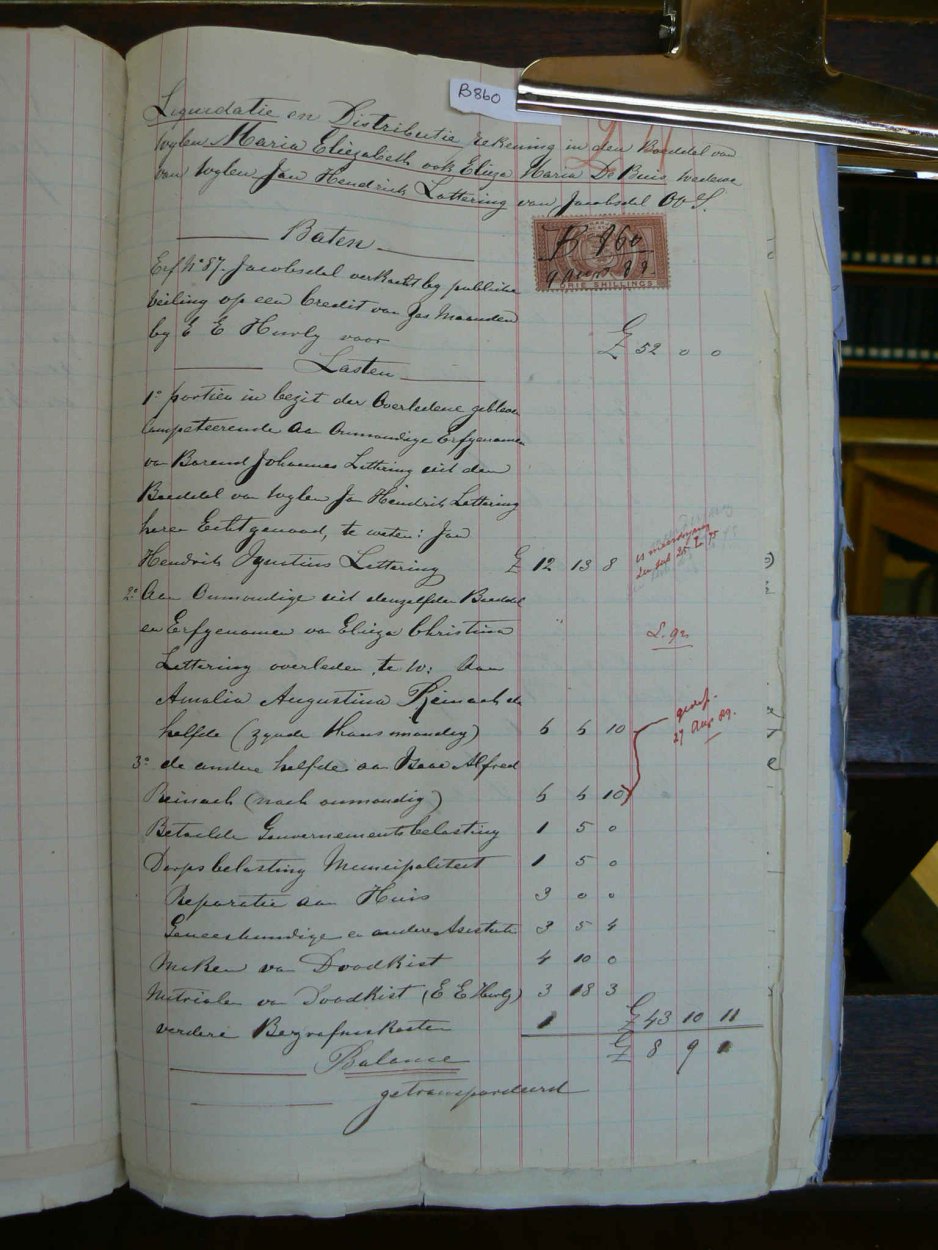 B860
Liquidatie en Distributie rekening in den Boedel van
wylen Maria Eliezabeth ook Elieza Maria De Buis weduwe
van wylen Jan Hendrik Lottering van Jacobsdal OVS.
Baten
B 860
DRIE SHILLINGS
Erf No 87. Jacobsdal verkocht by publieke
veiling op een Credit van Zes Maanden
by E E Hurly voor £ 52 0 0
Lasten
1o portien in bezit der Overledene gebleven
Competeerende aan Onmondige Erfgenamen
van Barend Johannes Lottering uit den
Boedel van wylen Jan Hendrik Lottering
haren Echtgenoot, te weten: Jan
Hendrik Ignatius Lottering £ 12 13 8
2o Aan Onmondige uit denzelfden Boedel
en Erfgenamen van Elieza Christina
Lottering overleden te w: Aan
Amalia Augustina Reinach de
helfte (zynde thans mondig) 6 6 10
27 Aug 89.
3o de andere helfte aan Isaac Alfred
Reinach (noch onmondig) 6 6 10
Betaalde Gouvernementsbelasting 1 5 0
Dorpsbelasting Municipaliteit 1 5 0
Reparatie aan Huis 3 0 0
Geneeskundige en andere Assistentie 3 5 4
Maken van Doodkist 4 10 0
Materialen van Doodkist (E E Hurly) 3 18 3
verdere Begrafniskosten 1 £ 43 10 11
Balance £ 8 9 1
getransporteerd